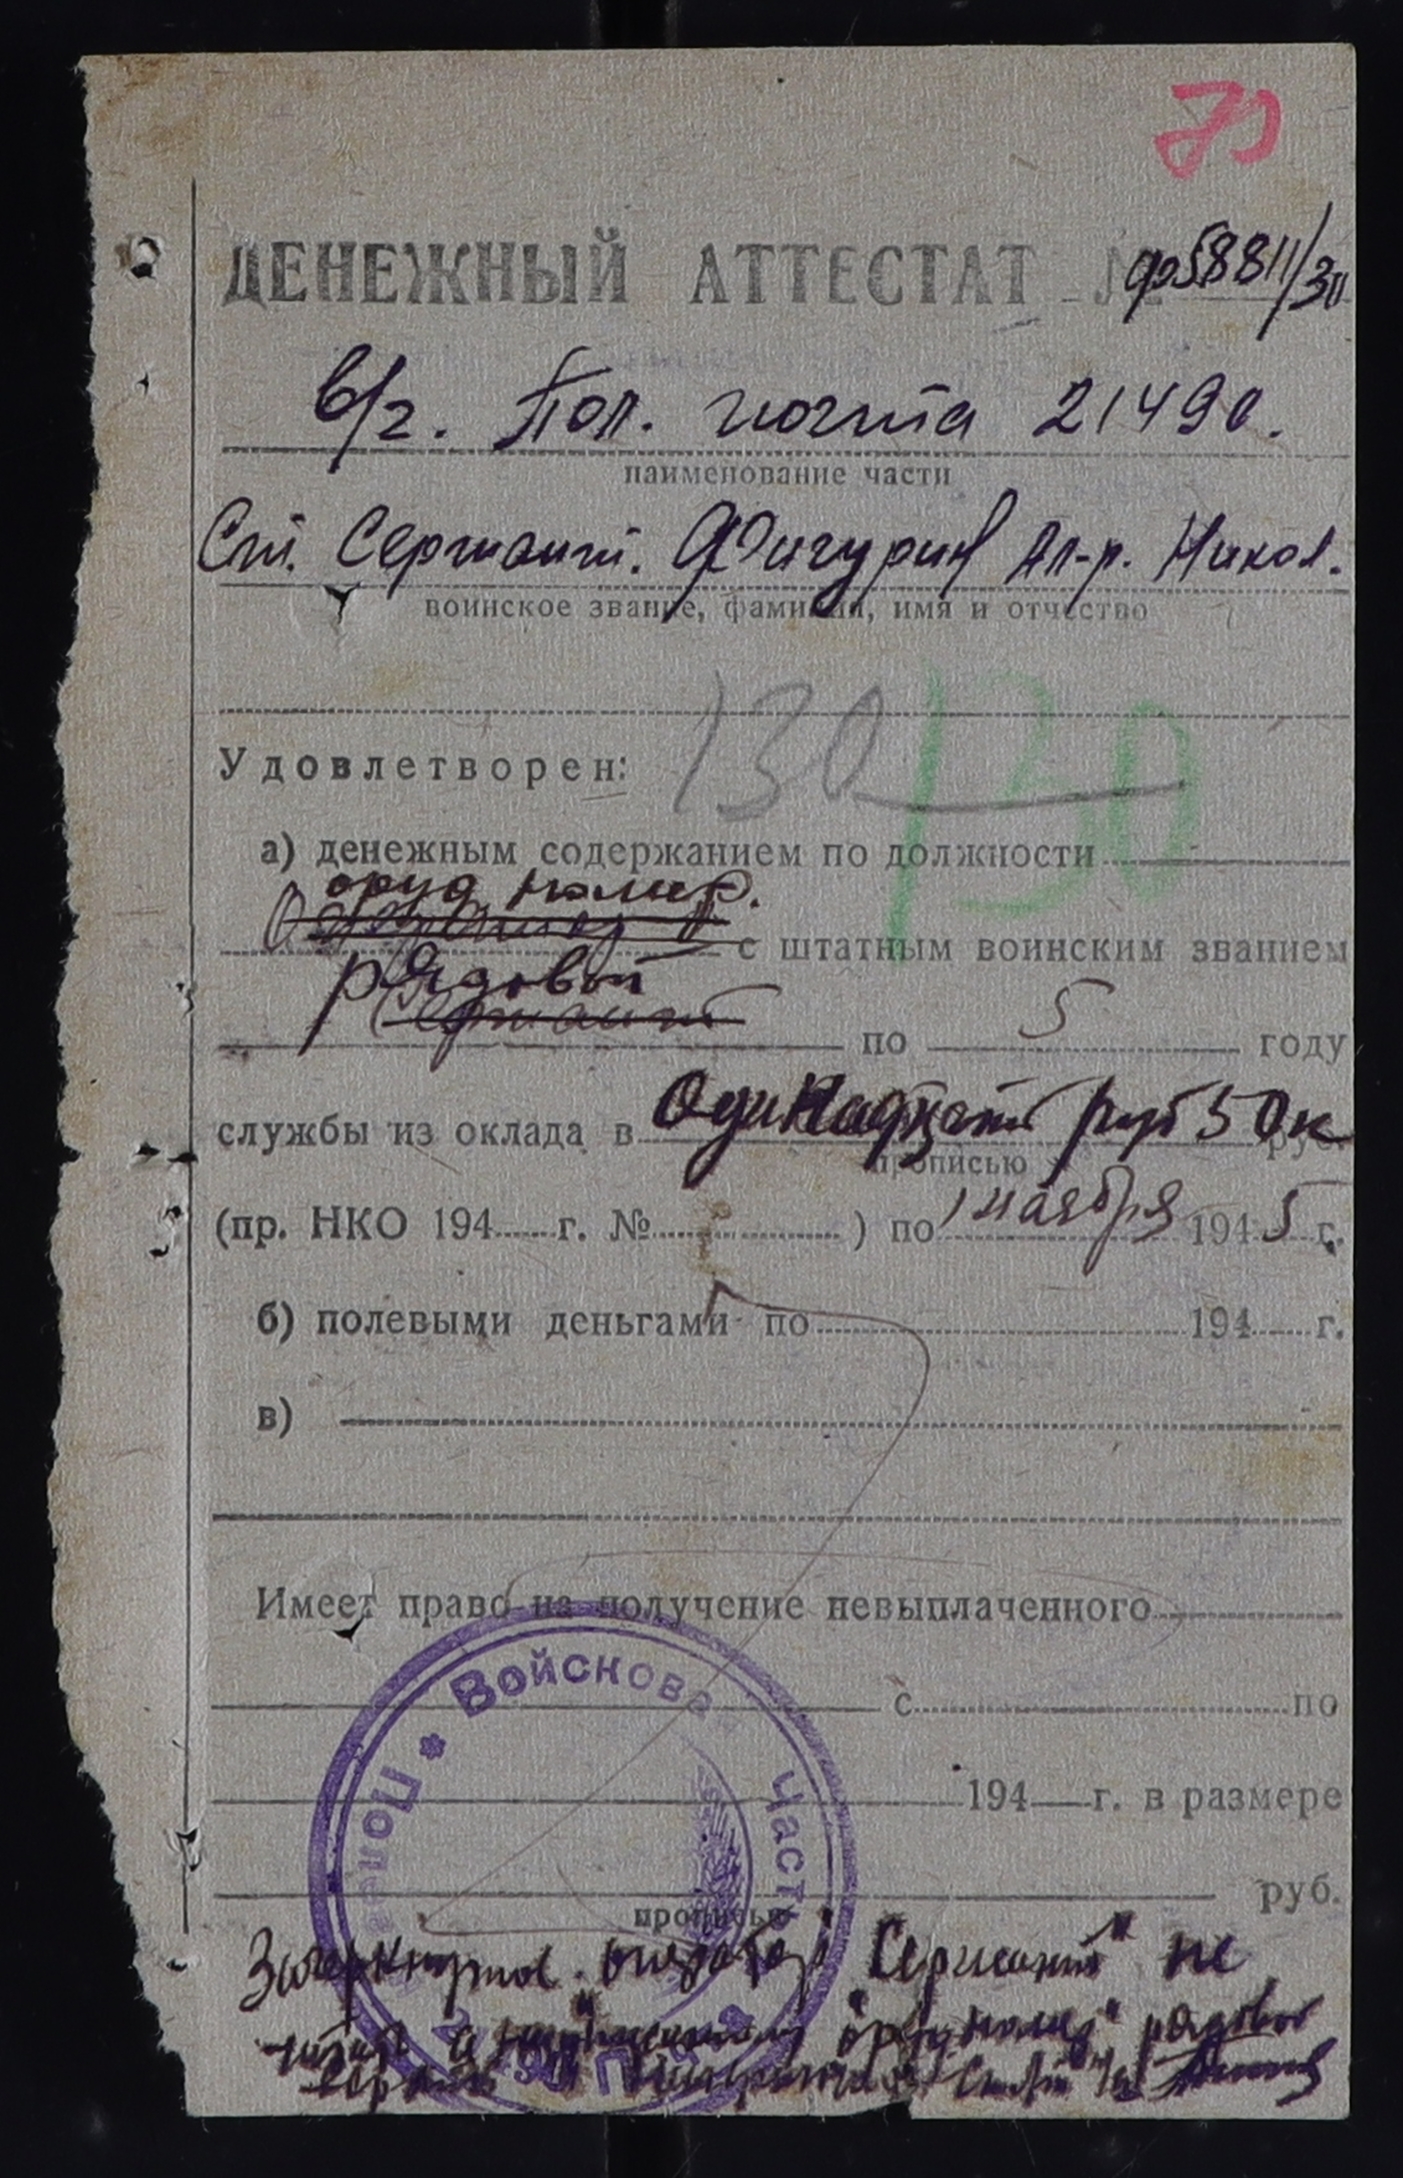 70
ДЕНЕЖНЫЙ АТТЕСТАТ № 058811/30
в/г. Пол. почта 21490.
наименование части
Ст. Сержант. Фигурин Ал-р. Никол.
воинское звание, фамилия, имя и отчество
130 130
Удовлетворен:
а) денежным содержанием по должности
оруд номер.
с штатным воинским званием
рядовой
Сержант
по 5 году
службы из оклада в Одинадцать руб 50 к руб.
прописью
(пр. НКО 194 г. № ) по 1 ноября 1945 г.
б) полевыми деньгами по 194 г.
в)
Имеет право на получение невыплаченного
с по
194 г. в размере
руб.
прописью
Войсковая Часть Полевая П
Зачеркнутое "Сержант" не
читать а рядовой